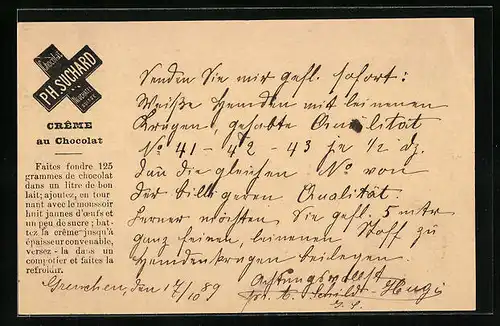 PH. SUCHARD
CRÊME
au Chocolat
Faites fondre 125
grammes de chocolat
dans un litre de bon
lait; ajoutez, en tour
nant avec le moussoir
huit jaunes d'œufs et
un peu de sucre; bat-
tez la crême jusqu'à
épaisseur convenable,
versez-la dans un
compotier et faites la
refroidir.
Senden Sie mir gefl. sofort:
Weiße Hemden mit leinenen
Kragen, gehabte Qualität
No 41 - 42 - 43 je 1/2 dz.
Dan die gleichen No von
der billigeren Qualität.
Ferner möchten Sie gefl. 5 mtr
ganz feinen, leinenen Stoff zu
Hemdenkragen beilegen.
Achtungsvollst
Schild-Hugi
Grenchen, den 17/10 89